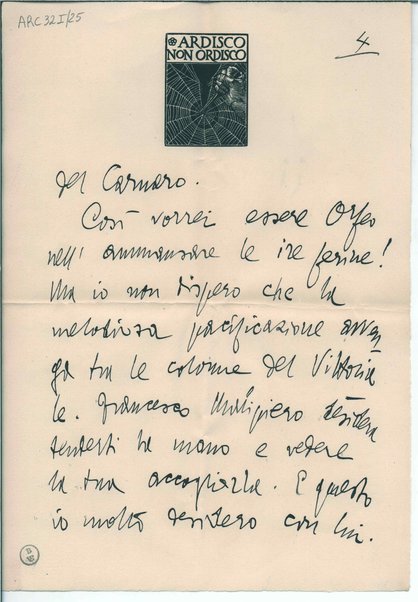 ARC 32 I/25
4
ARDISCO
NON ORDISCO
del Carnaro.
Così vorrei essere Orfeo
nell' ammansare le ire ferine!
Ma io non dispero che la
melodiosa pacificazione avven
ga tra le colonne del Vittoria
le. Francesco Malipiero desidera
tenderti la mano e vedere
la tua accoglierla. E questo
io molto desidero con lui.